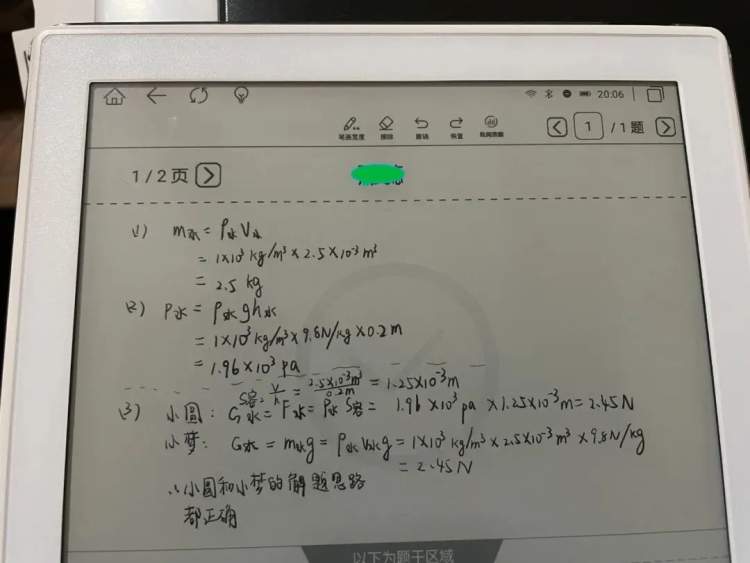 20:06
笔迹宽度 擦除 撤销 恢复
1 / 1 题
1 / 2 页
(1) m水 = ρ水V水
= 1×10³ kg/m³ × 2.5×10⁻³ m³
= 2.5 kg
(2) P水 = ρ水gh水
= 1×10³ kg/m³ × 9.8N/kg × 0.2m
= 1.96×10³ pa
S容 = V/h = 2.5×10⁻³m³/0.2m = 1.25×10⁻³m
(3) 小圆: G水 = F水 = P水 S容 = 1.96 ×10³ pa × 1.25×10⁻³m = 2.45 N
小梦: G水 = m水g = ρ水V水g = 1×10³ kg/m³ × 2.5×10⁻³ m³ × 9.8N/kg
= 2.45 N
∴小圆和小梦的解题思路
都正确
以下为题干区域